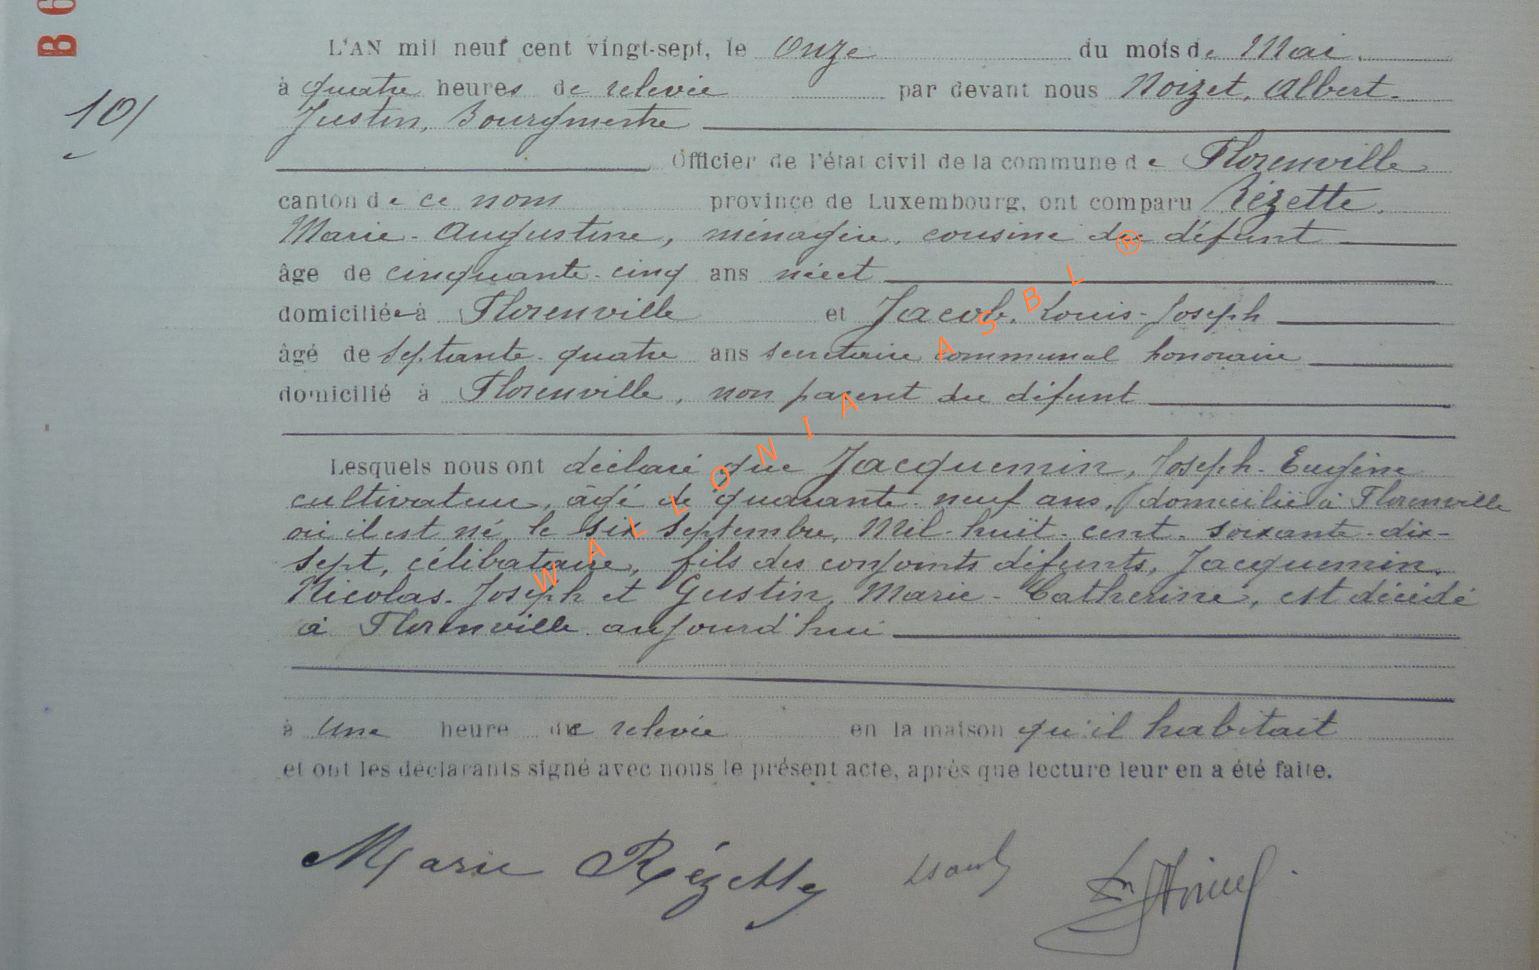 B 6
L'AN mil neuf cent vingt-sept, le Onze du mois de Mai.
10/
à quatre heures de relevée par devant nous Noizet, Albert-
Justin, Bourgmestre
Officier de l'état civil de la commune de Florenville
canton de ce nom province de Luxembourg, ont comparu Rézette,
Marie-Augustine, ménagère, cousine du défunt
âge de cinquante-cinq ans
domiciliée à Florenville et Jacob, Louis-Joseph
âgé de septante-quatre ans secrétaire communal honoraire
domicilié à Florenville, non parent du défunt
Lesquels nous ont déclaré que Jacquemin, Joseph-Eugène
cultivateur, âgé de quarante-neuf ans, domicilié à Florenville
où il est né le six septembre, Mil-huit-cent-soixante-dix-
sept, célibataire, fils des conjoints défunts, Jacquemin,
Nicolas-Joseph et Gustin, Marie-Catherine, est décédé
à Florenville aujourd'hui
à une heure de relevée en la maison qu'il habitait
et ont les déclarants signé avec nous le présent acte, après que lecture leur en a été faite.
Marie Rézette
WALLONIA ASBL ®